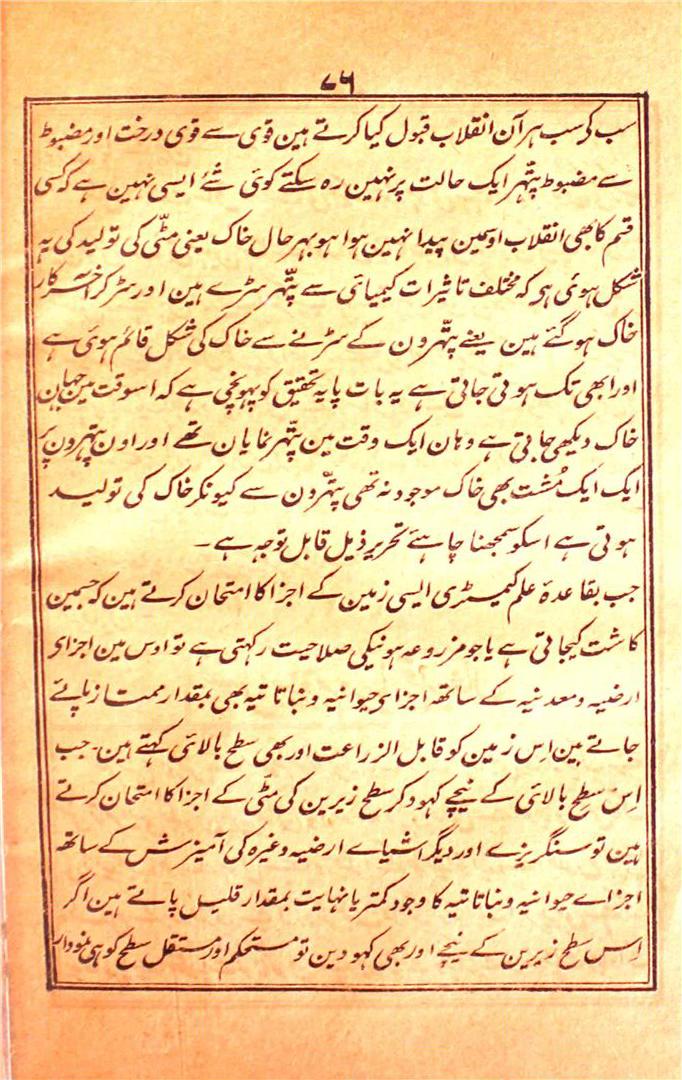 ۷۶
سب کی سب ہر آن انقلاب قبول کیا کرتے ہین قوی سے قوی درخت اور مضبوط
سے مضبوط پتّھر ایک حالت پر نہین رہ سکتے کوئی شئے ایسی نہین ہے کہ کسی
قسم کا بھی انقلاب اوسمین پیدا نہین ہوا ہو بہر حال خاک یعنی مٹّی کی تولید کی یہ
شکل ہوئی ہی کہ مختلف تاثیرات کیمیائی سے پتّھر سڑے ہین اور سڑ کر آخر کار
خاک ہو گئے ہین یعنے پتّھرون کے سڑنے سے خاک کی شکل قائم ہوئی ہے
اور ابھی تک ہوتی جاتی ہے یہ بات پایۂ تحقیق کو پہونچی ہے کہ اسوقت مین جہان
خاک دیکھی جاتی ہے وہان ایک وقت مین پتّھر نمایان تھے اور اون پتّھرون پر
ایک ایک مُشت بھی خاک موجود نہ تھی پتّھرون سے کیونکر خاک کی تولید
ہوتی ہے اسکو سمجھنا چاہئے تحریر ذیل قابل توجہ ہے ۔
جب بقاعدۂ علم کیمسٹری ایسی زمین کے اجزا کا امتحان کرتے ہین کہ جسمین
کاشت کیجاتی ہے یا جو مزروعہ ہونیکی صلاحیت رکھتی ہے تو اوس مین اجزای
ارضیہ و معدنیہ کے ساتھ اجزای حیوانیہ و نباتاتیہ بھی بمقدار ممتاز پائے
جاتے ہین اِس زمین کو قابل الزراعت اور بھی سطح بالائی کہتے ہین ۔ جب
اِس سطح بالائی کے نیچے کہود کر سطح زیرین کی مٹّی کے اجزا کا امتحان کرتے
ہین تو سنگریزے اور دیگر اشیاے ارضیہ وغیرہ کی آمیزش کے ساتھ
اجزاے حیوانیہ و نباتاتیہ کا وجود کمتر یا نہایت بمقدار قلیل پاتے ہین اگر
اِس سطح زیرین کے نیچے اور بھی کہودین تو مستحکم اور مستقل سطح کوہی نمودار